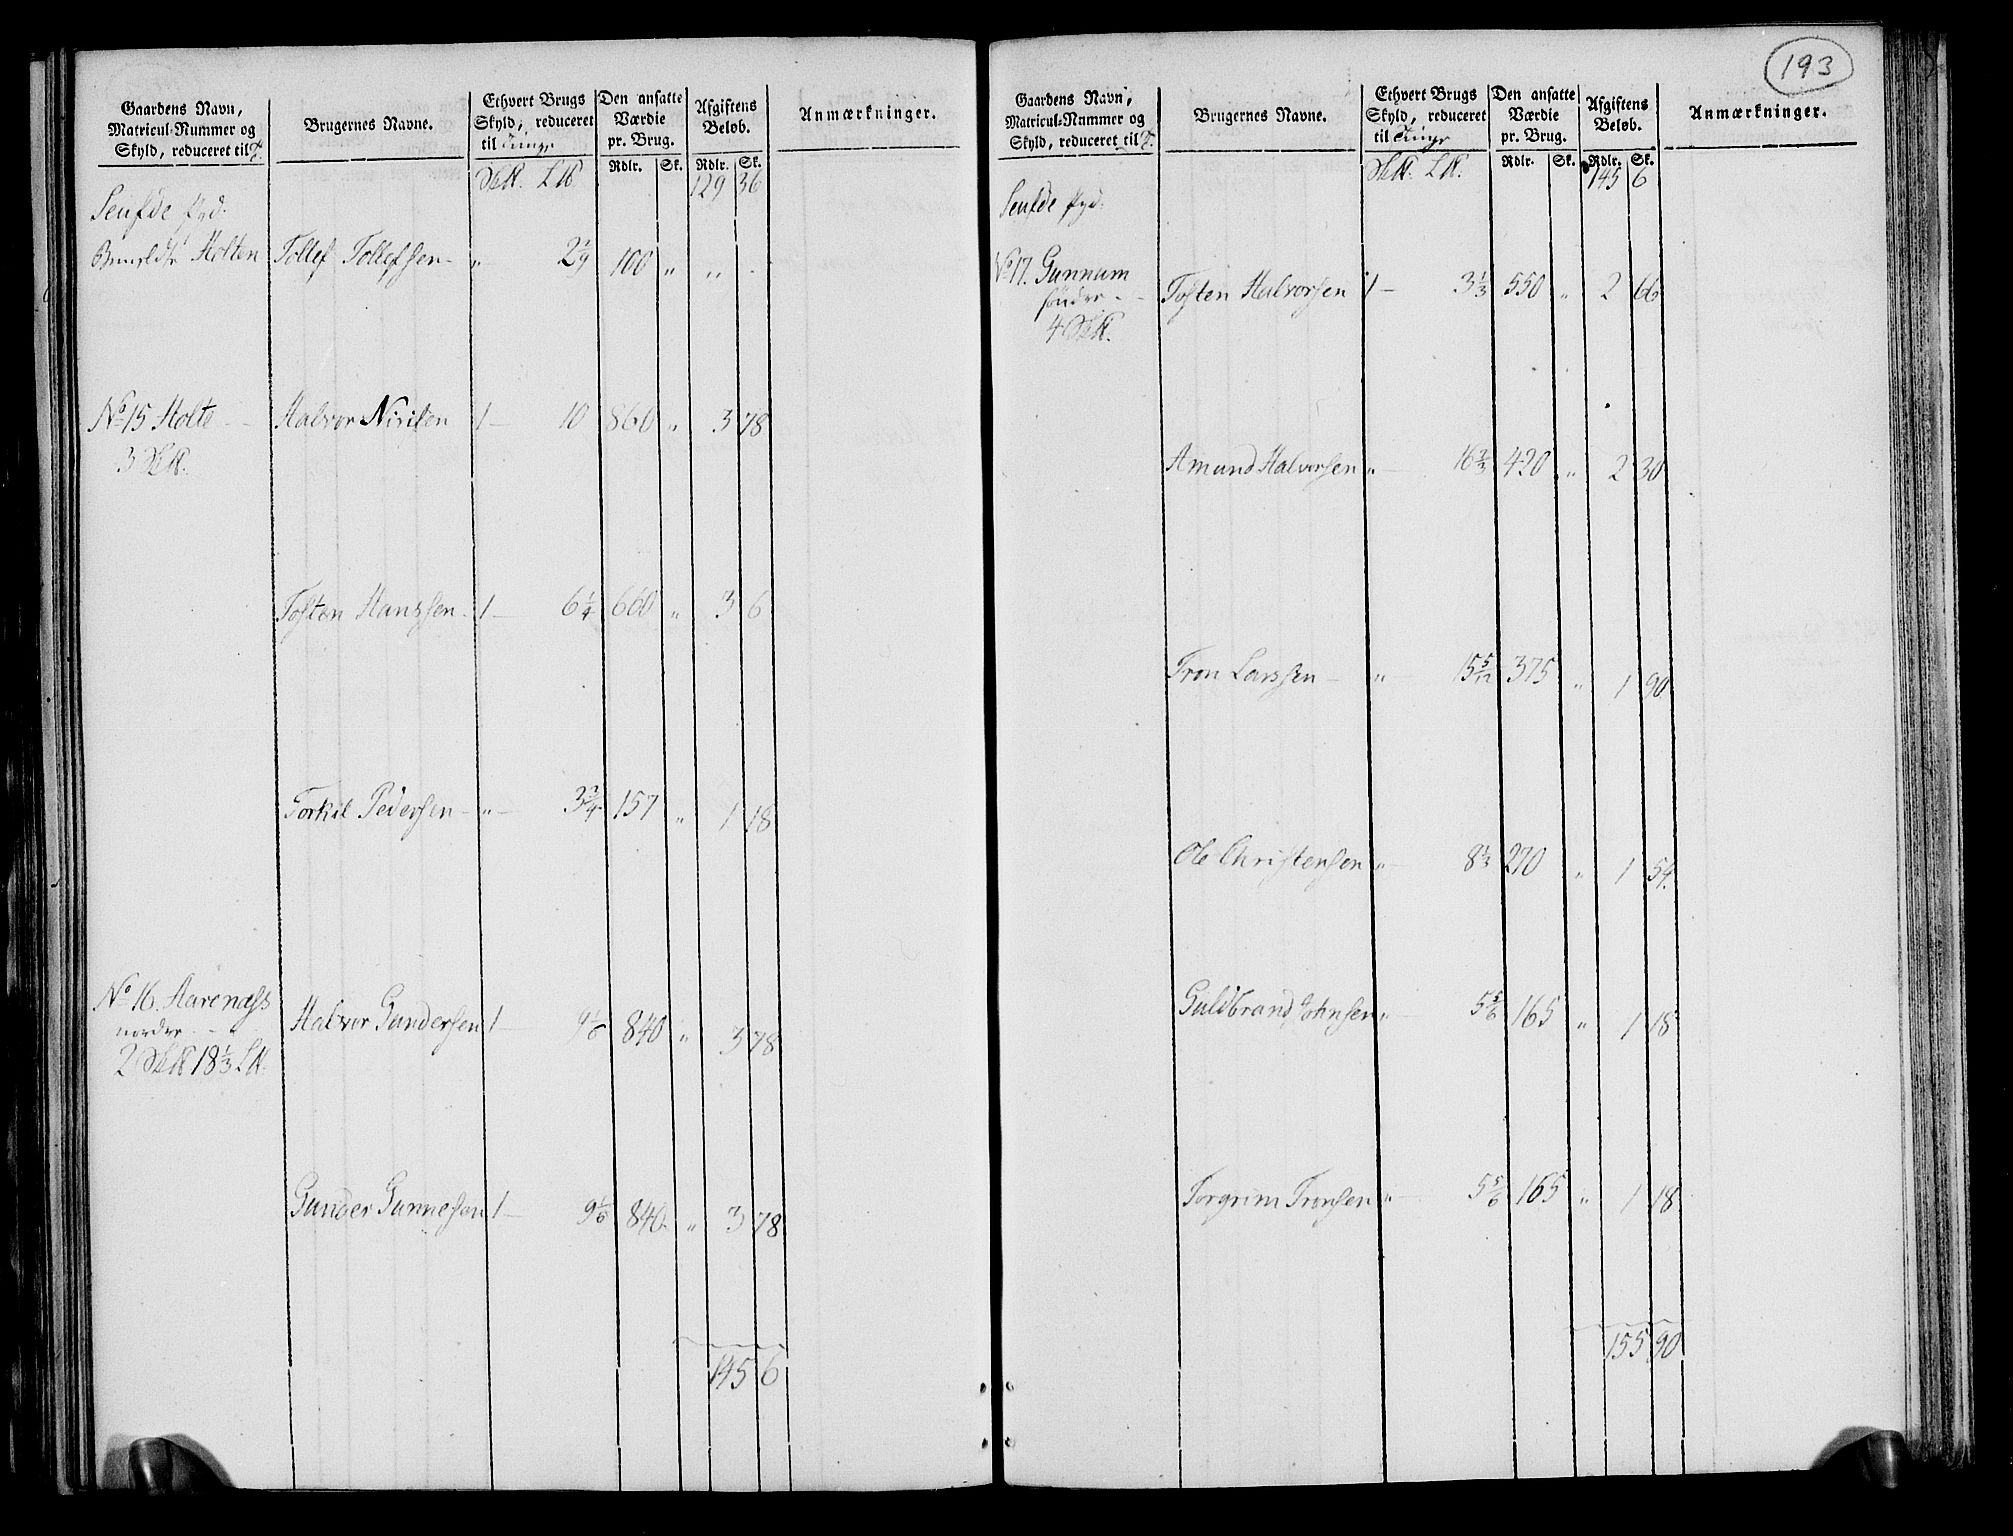 Gaardens Navn, Matricul-Nummer og Skyld, reduceret til T.
Brugernes Navne.
Ethvert Brugs Skyld, reduceret til Tunge
Den ansatte Værdie pr. Brug.
Afgiftens Beløb.
Anmærkninger.
Rdlr. Sk. Rdlr. Sk.
129 36
Holten Tollef Tollefsen - „ 2 1/9 100 „ „
No 15 Holte - - Halvor Nirisen 1 - 10 860 „ 3 78
3
Tosten Hanssen - 1 - 6 1/4 660 „ 3 6
Torkil Pedersen - „ - 3 3/4 157 „ 1 18
No 16. Aarenæss
nordre - - Halvor Gundersen 1 - 9 1/6 840 „ 3 78
2 18 1/3
Gunder Gunnesen 1 - 9 1/6 840 „ 3 78
145 6
193
Gaardens Navn, Matricul-Nummer og Skyld, reduceret til T.
Brugernes Navne.
Ethvert Brugs Skyld, reduceret til Tunge
Den ansatte Værdie pr. Brug.
Afgiftens Beløb.
Anmærkninger.
Rdlr. Sk. Rdlr. Sk.
145 6
No 17. Gunnum
søndre - - Tosten Halvorsen 1 - 3 1/3 550 „ 2 66
4
Amund Halvorsen „ - 16 2/3 420 „ 2 30
Tron Larssen - „ - 15 5/12 375 „ 1 90
Ole Christensen „ - 8 1/3 270 „ 1 54.
Guldbrand Johnsen „ - 5 5/6 165 „ 1 18
Torgrim Tronsen „ - 5 5/6 165 „ 1 18
155 90